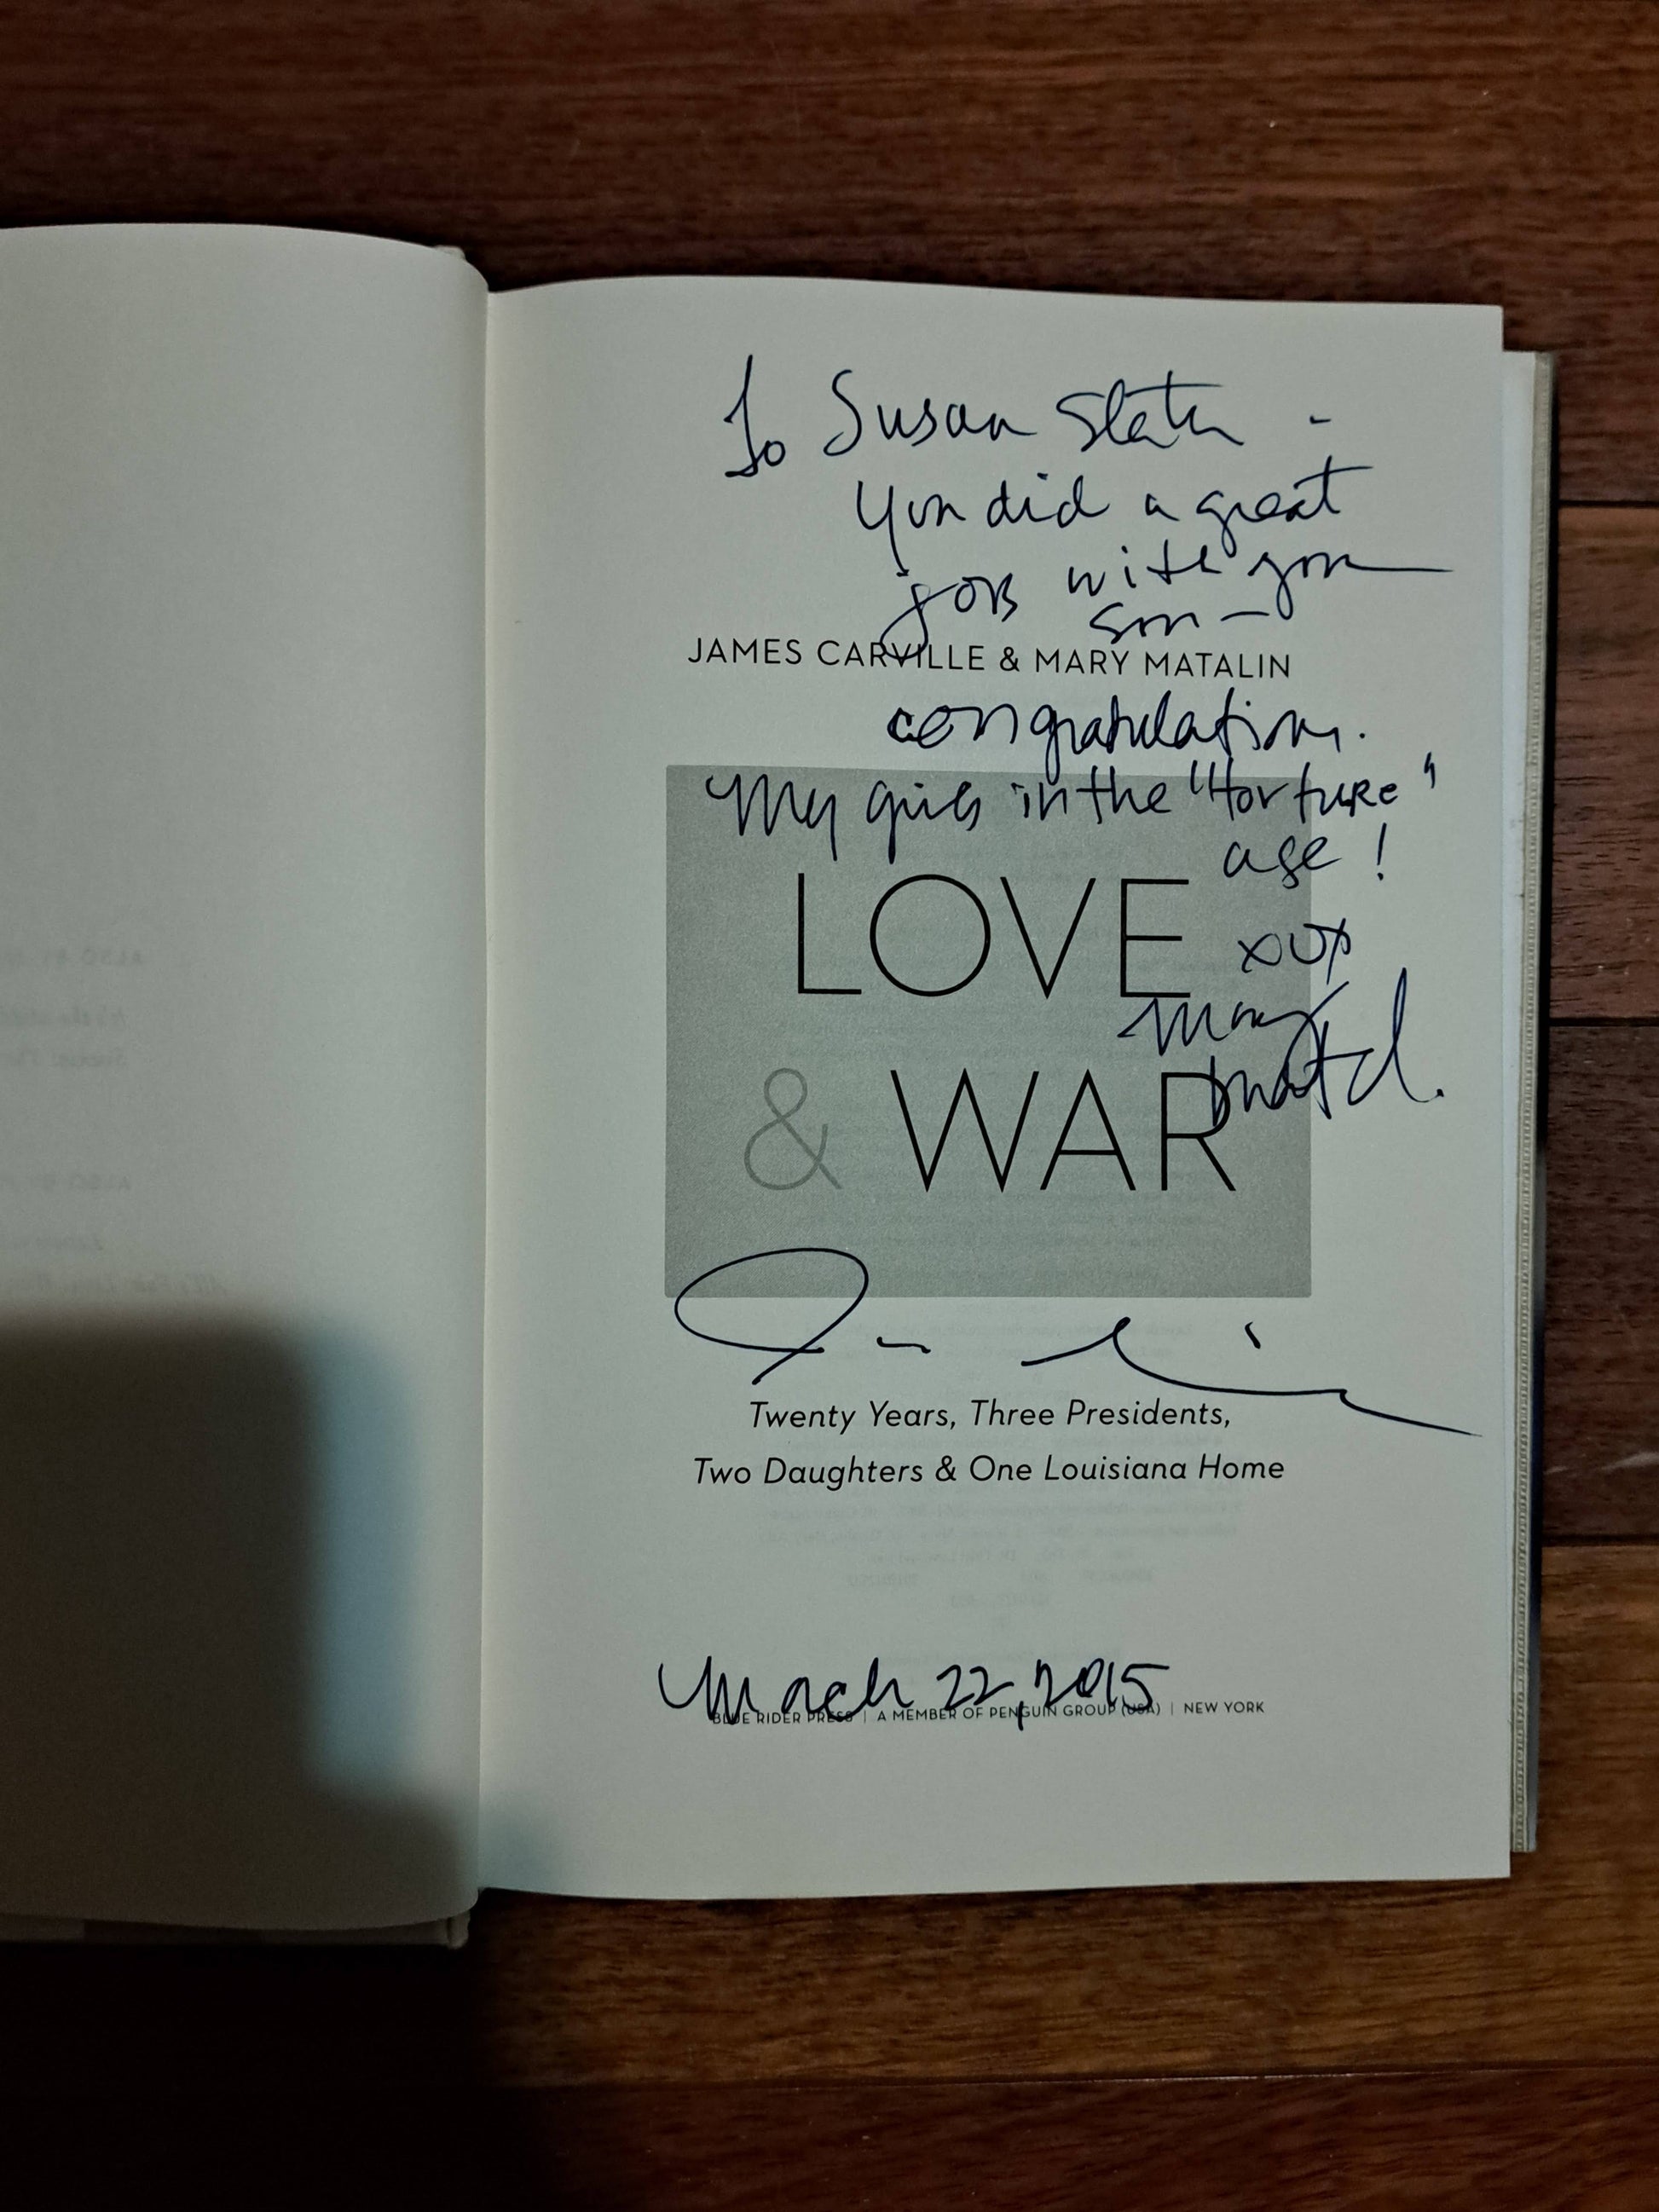 To Susan Slater -
You did a great
job with your
son -
JAMES CARVILLE & MARY MATALIN
congratulations.
My girls in the "torture"
age!
LOVE
xox
Mary
Matalin
& WAR
Twenty Years, Three Presidents,
Two Daughters & One Louisiana Home
March 22, 2015
BLUE RIDER PRESS | A MEMBER OF PENGUIN GROUP (USA) | NEW YORK